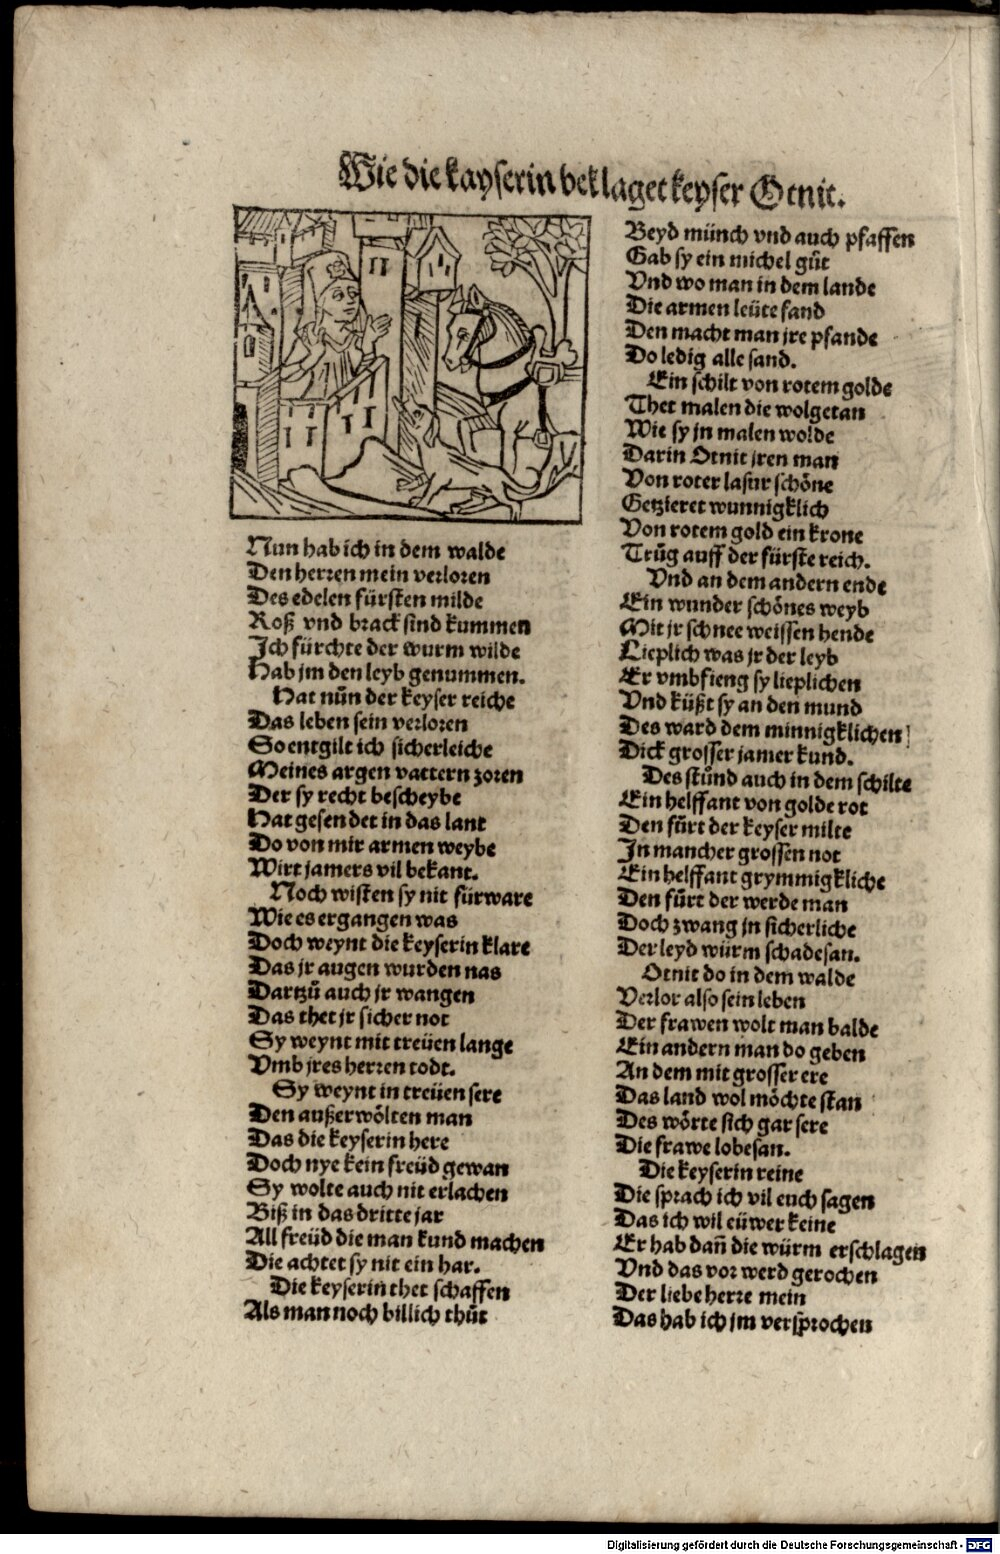 Wie die kayserin beklaget keyser Otnit.
Nun hab ich in dem walde
Den herren mein verloren
Des edelen fürsten milde
Roß vnd brack sind kummen
Ich fürchte der wurm wilde
Hab jm den leyb genummen.
Hat nůn der keyser reiche
Das leben sein verloren
So entgilt ich sicherleiche
Meines argen vattern zoren
Der sy recht bescheybe
Hat gesendet in das lant
Do von mir armen weybe
Wirt jamers vil bekant.
Noch wisten sy nit fürware
Wie es ergangen was
Doch weynt die keyserin klare
Das jr augen wurden nas
Dartzů auch jr wangen
Das thet jr sicher not
Sy weynt mit treüen lange
Vmb jres herren todt.
Sy weynt in treüen sere
Den außerwölten man
Das die keyserin here
Doch nye kein freüd gewan
Sy wolte auch nit erlachen
Biß in das dritte jar
All freüd die man kund machen
Die achtet sy nit ein har.
Die keyserin thet schaffen
Als man noch billich thůt
Beyd münch vnd auch pfaffen
Gab sy ein michel gůt
Vnd wo man in dem lande
Die armen leüte fand
Den macht man jre pfande
Do ledig alle sand.
Ein schilt von rotem golde
Thet malen die wolgetan
Wie sy jn malen wolde
Darin Otnit jren man
Von roter lasur schöne
Getzieret wunnigklich
Von rotem gold ein krone
Trůg auff der fürste reich.
Vnd an dem andern ende
Ein wunder schönes weyb
Mit jr schnee weissen hende
Lieplich was jr der leyb
Er vmbfieng sy lieplichen
Vnd küßt sy an den mund
Des ward dem minnigklichen
Dick grosser jamer kund.
Des stůnd auch in dem schilte
Ein helffant von golde rot
Den fůrt der keyser milte
In mancher grossen not
Ein helffant grymmigkliche
Den fůrt der werde man
Doch zwang jn sicherliche
Der leyd würm schadesan.
Otnit do in dem walde
Verlor also sein leben
Der frawen wolt man balde
Ein andern man do geben
An dem mit grosser ere
Das land wol möchte stan
Des wörte sich gar sere
Die frawe lobesan.
Die keyserin reine
Die sprach ich vil euch sagen
Das ich wil eüwer keine
Er hab dañ die würm erschlagen
Vnd das vor werd gerochen
Der liebe herre mein
Das hab ich jm versprochen
Digitalisierung gefördert durch die Deutsche Forschungsgemeinschaft - DFG